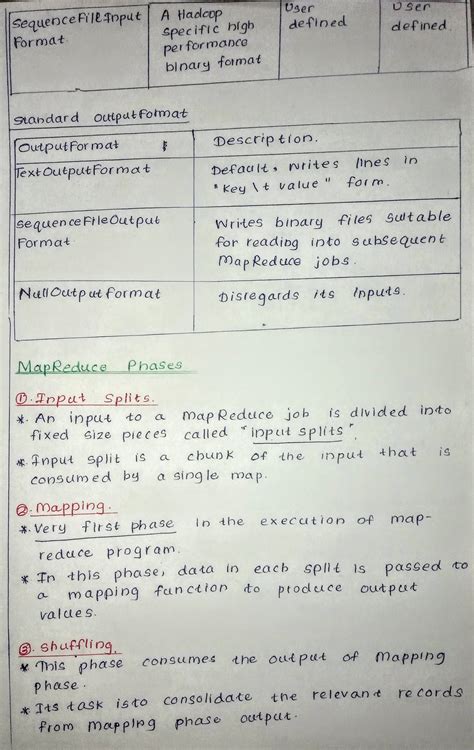 SequenceFileInput Format | A Hadoop specific high performance binary format | User defined | User defined.
Standard OutputFormat
OutputFormat | Description.
TextOutputFormat | Default, writes lines in "Key \t value" form.
SequenceFileOutput Format | Writes binary files suitable for reading into subsequent MapReduce jobs.
NullOutputFormat | Disregards its Inputs.
MapReduce Phases
①. Input Splits.
*. An input to a mapReduce job is divided into
fixed size pieces called "input splits".
*. Input split is a chunk of the input that is
consumed by a single map.
②. Mapping.
*. Very first phase in the execution of map-
reduce program.
* In this phase, data in each split is passed to
a mapping function to produce output
values.
③. Shuffling.
* This phase consumes the output of Mapping
phase.
* Its task is to consolidate the relevant records
from Mapping phase output.